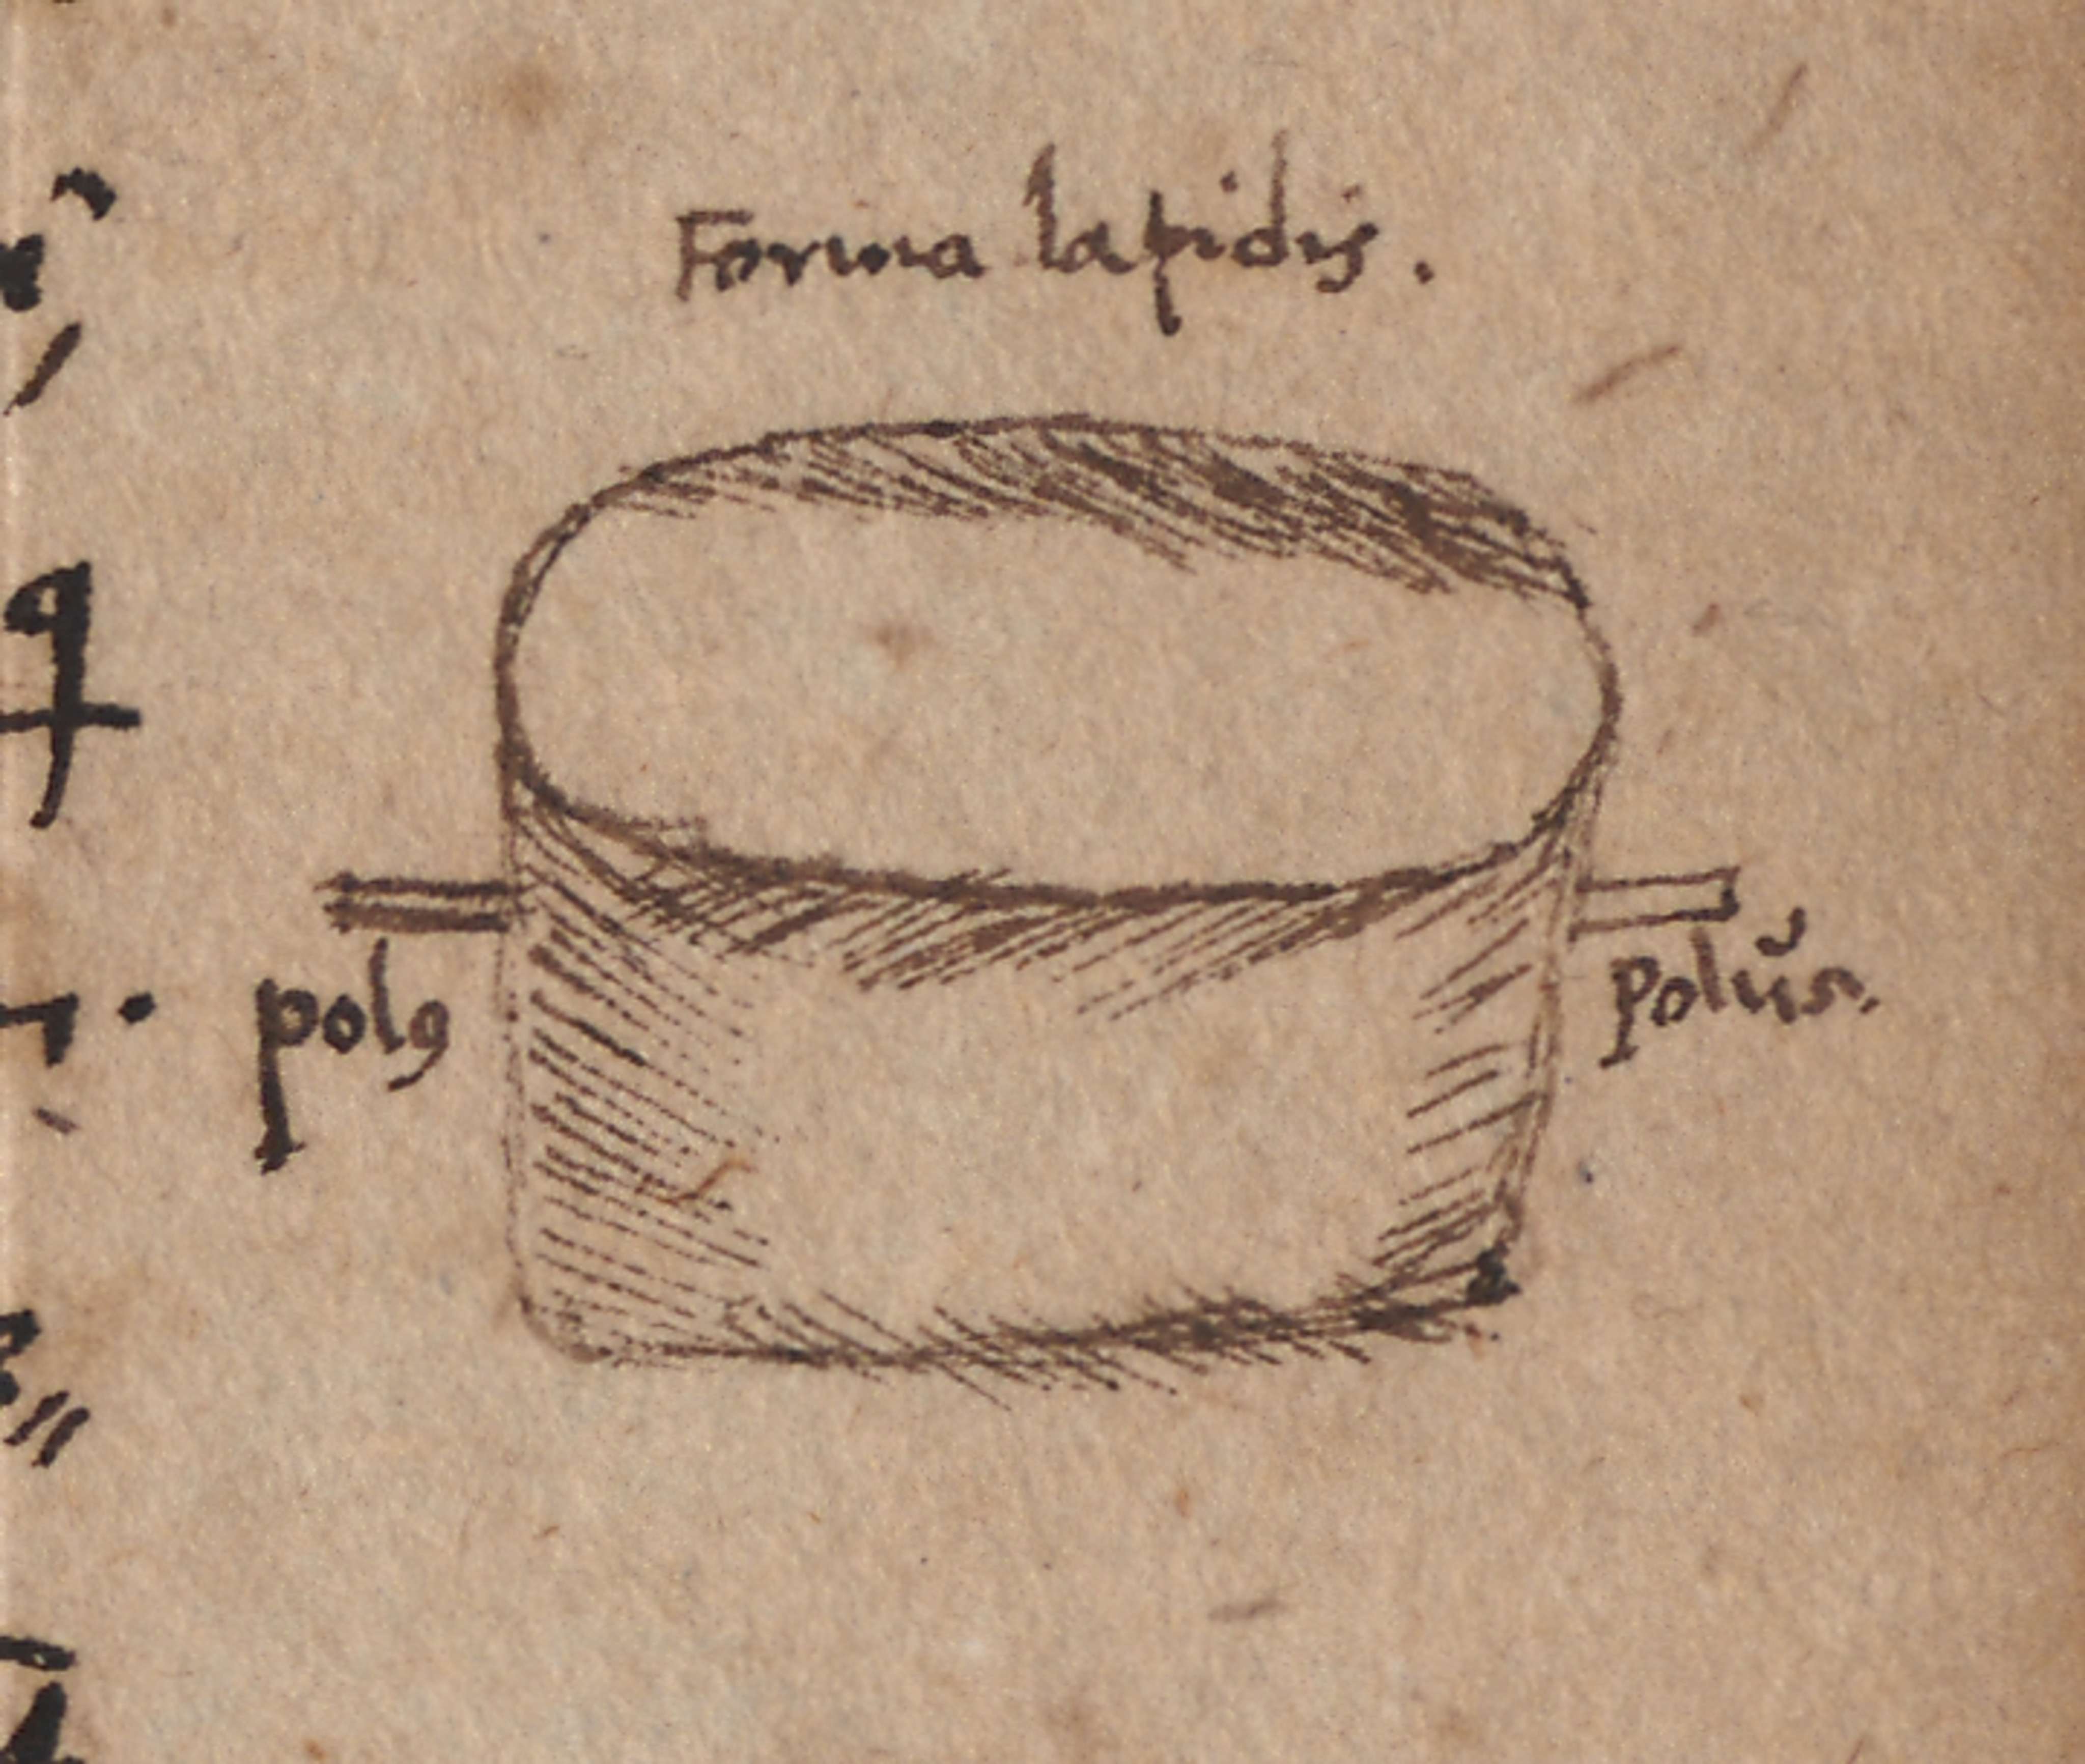 Forma lapidis.
polꝯ
Polŭs.